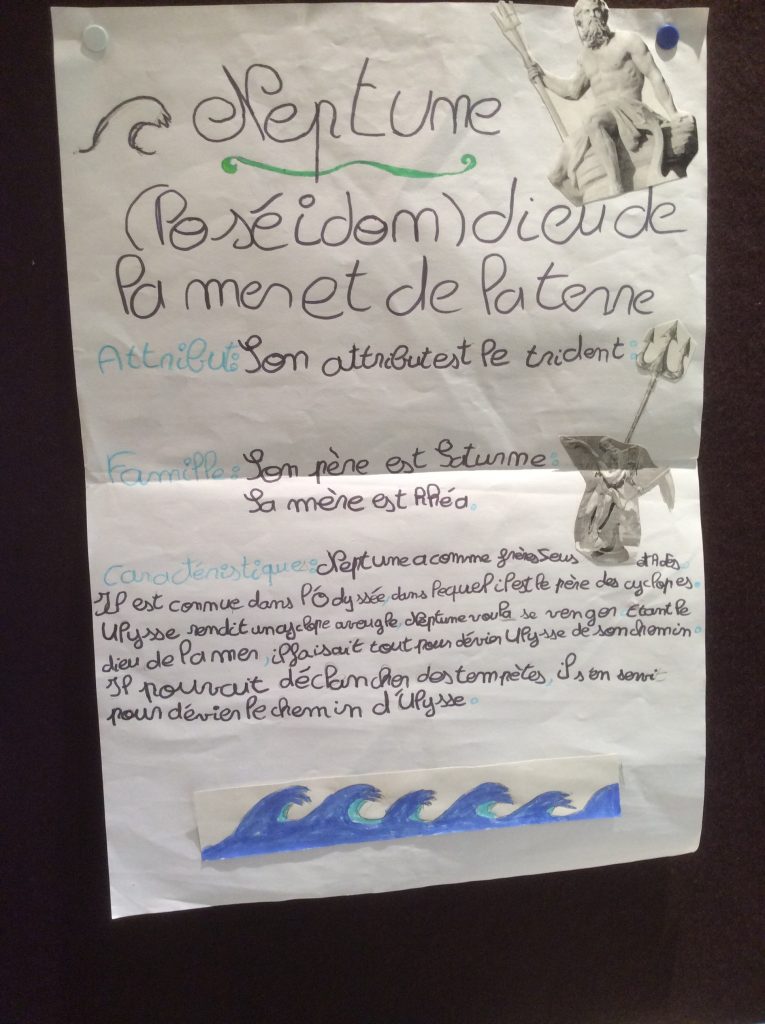 Neptune
(Poséidon) dieu de
la mer et de la terre
Attribut: Son attribut est le trident:
Famille: Son père est Saturne:
Sa mère est Rhéa.
Caractéristique: Neptune a comme frères Zeus et Adès.
Il est connue dans l'Odyssée, dans lequel il est le père des cyclopes.
Ulysse rendit un cyclope aveugle, Neptune voula se venger. Etant le
dieu de la mer, il faisait tout pour dévier Ulysse de son chemin.
Il pouvait déclancher des tempêtes, il s'en servit
pour dévier le chemin d'Ulysse.